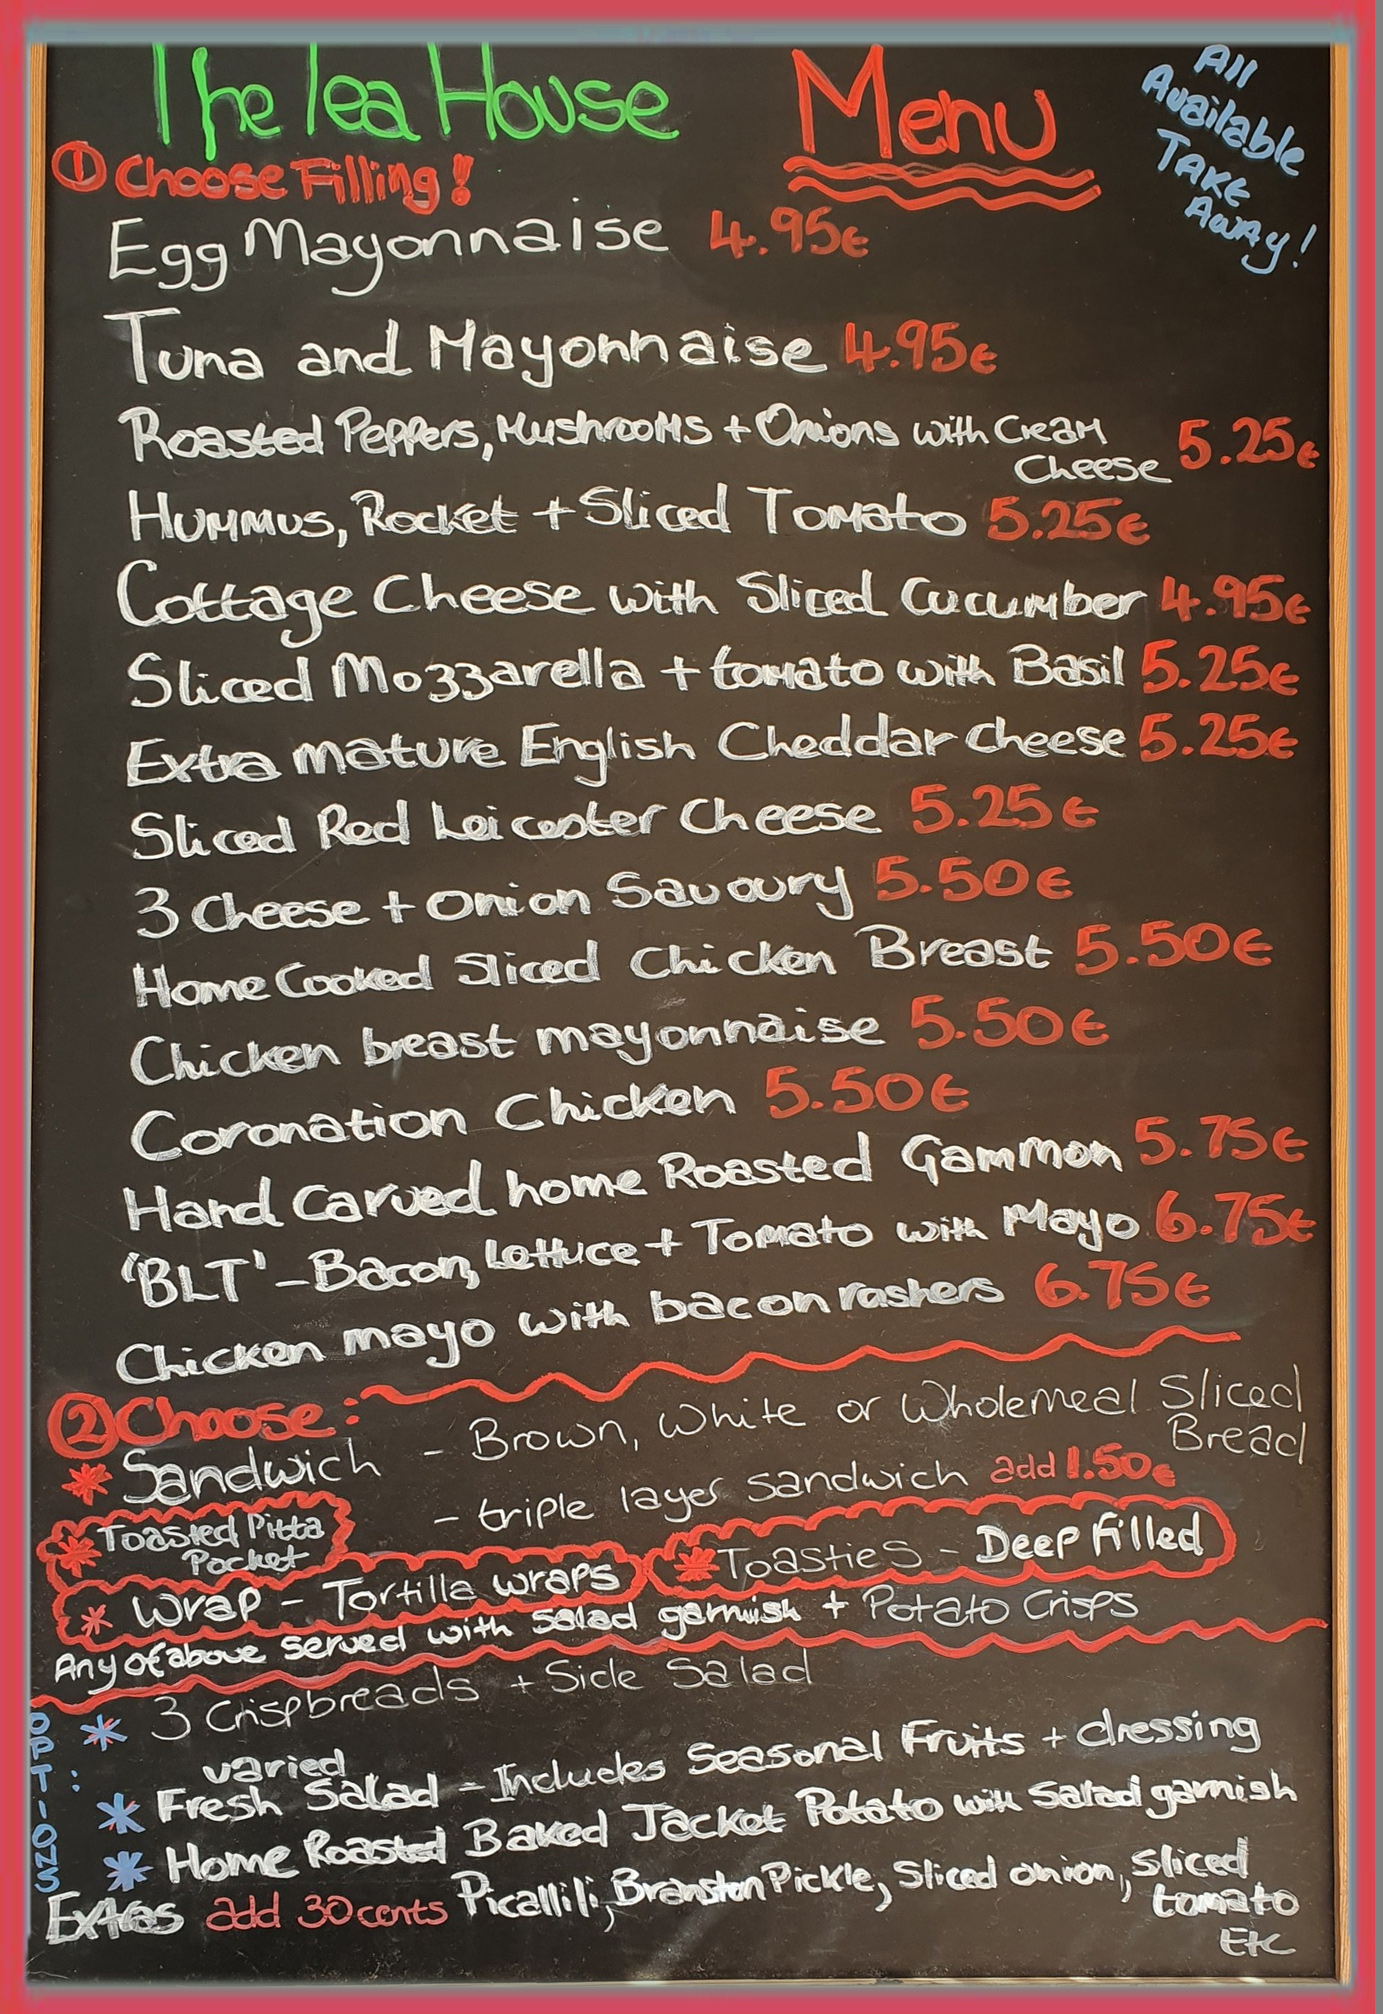 The Tea House Menu
All
Available
TAKE
AWAY!
① Choose Filling!
Egg Mayonnaise 4.95€
Tuna and Mayonnaise 4.95€
Roasted Peppers, Mushrooms + Onions with Cream
Cheese 5.25€
Hummus, Rocket + Sliced Tomato 5.25€
Cottage Cheese with Sliced Cucumber 4.95€
Sliced Mozzarella + tomato with Basil 5.25€
Extra mature English Cheddar cheese 5.25€
Sliced Red Leicester Cheese 5.25€
3 Cheese + Onion Savoury 5.50€
Home Cooked Sliced Chicken Breast 5.50€
Chicken breast mayonnaise 5.50€
Coronation Chicken 5.50€
Hand Carved home Roasted Gammon 5.75€
'BLT' - Bacon, Lettuce + Tomato with Mayo 6.75€
Chicken mayo with bacon rashers 6.75€
② Choose:
* Sandwich - Brown, White or Wholemeal Sliced
Bread
- triple layer sandwich add 1.50€
* Toasted Pitta
Pocket
* Toasties - Deep Filled
* Wrap - Tortilla wraps
Any of above served with Salad garnish + Potato Crisps
OPTIONS:
* 3 Crispbreads + Side Salad
varied
* Fresh Salad - Includes Seasonal Fruits + dressing
* Home Roasted Baked Jacket Potato with Salad garnish
Extras add 30 cents Picallili, Branston Pickle, Sliced onion, Sliced
tomato
Etc